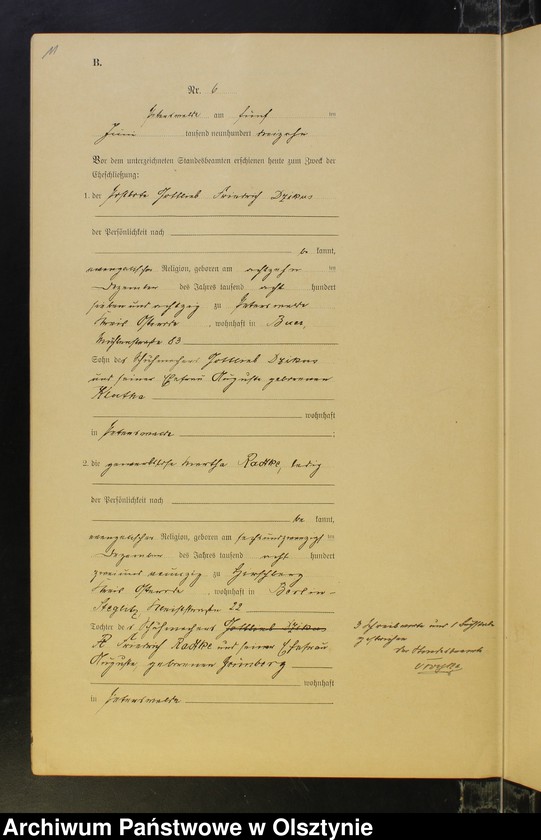 11
B.
Nr. 6
Peterswalde am fünf ten
Juni tausend neunhundert dreizehn
Vor dem unterzeichneten Standesbeamten erschienen heute zum Zweck der
Eheschließung:
1. der Postbote Gottlieb Friedrich Dzikus
der Persönlichkeit nach
be kannt,
evangelischer Religion, geboren am achtzehn ten
Dezember des Jahres tausend acht hundert
siebenundachtzig zu Peterswalde
Kreis Osterode, wohnhaft in Buer,
Mühlenstraße 83
Sohn des Schuhmachers Gottlieb Dzikus
und seiner Ehefrau Auguste geborenen
wohnhaft
in Peterswalde ;
2. die gewerblose Martha Radtke, ledig
der Persönlichkeit nach
be kannt,
evangelischer Religion, geboren am sechsundzwanzigsten
Dezember des Jahres tausend acht hundert
zweiundneunzig zu Hirschberg
Kreis Osterode, wohnhaft in Berlin-
Steglitz 22
Tochter des Schuhmachers Gottlieb Dzikus
Friedrich Radtke und seiner Ehefrau
Auguste geborenen Grimberg
wohnhaft
in Peterswalde
3 Schreibworte und 1 Buchstabe
gestrichen
Der Standesbeamte
Archiwum Państwowe w Olsztynie